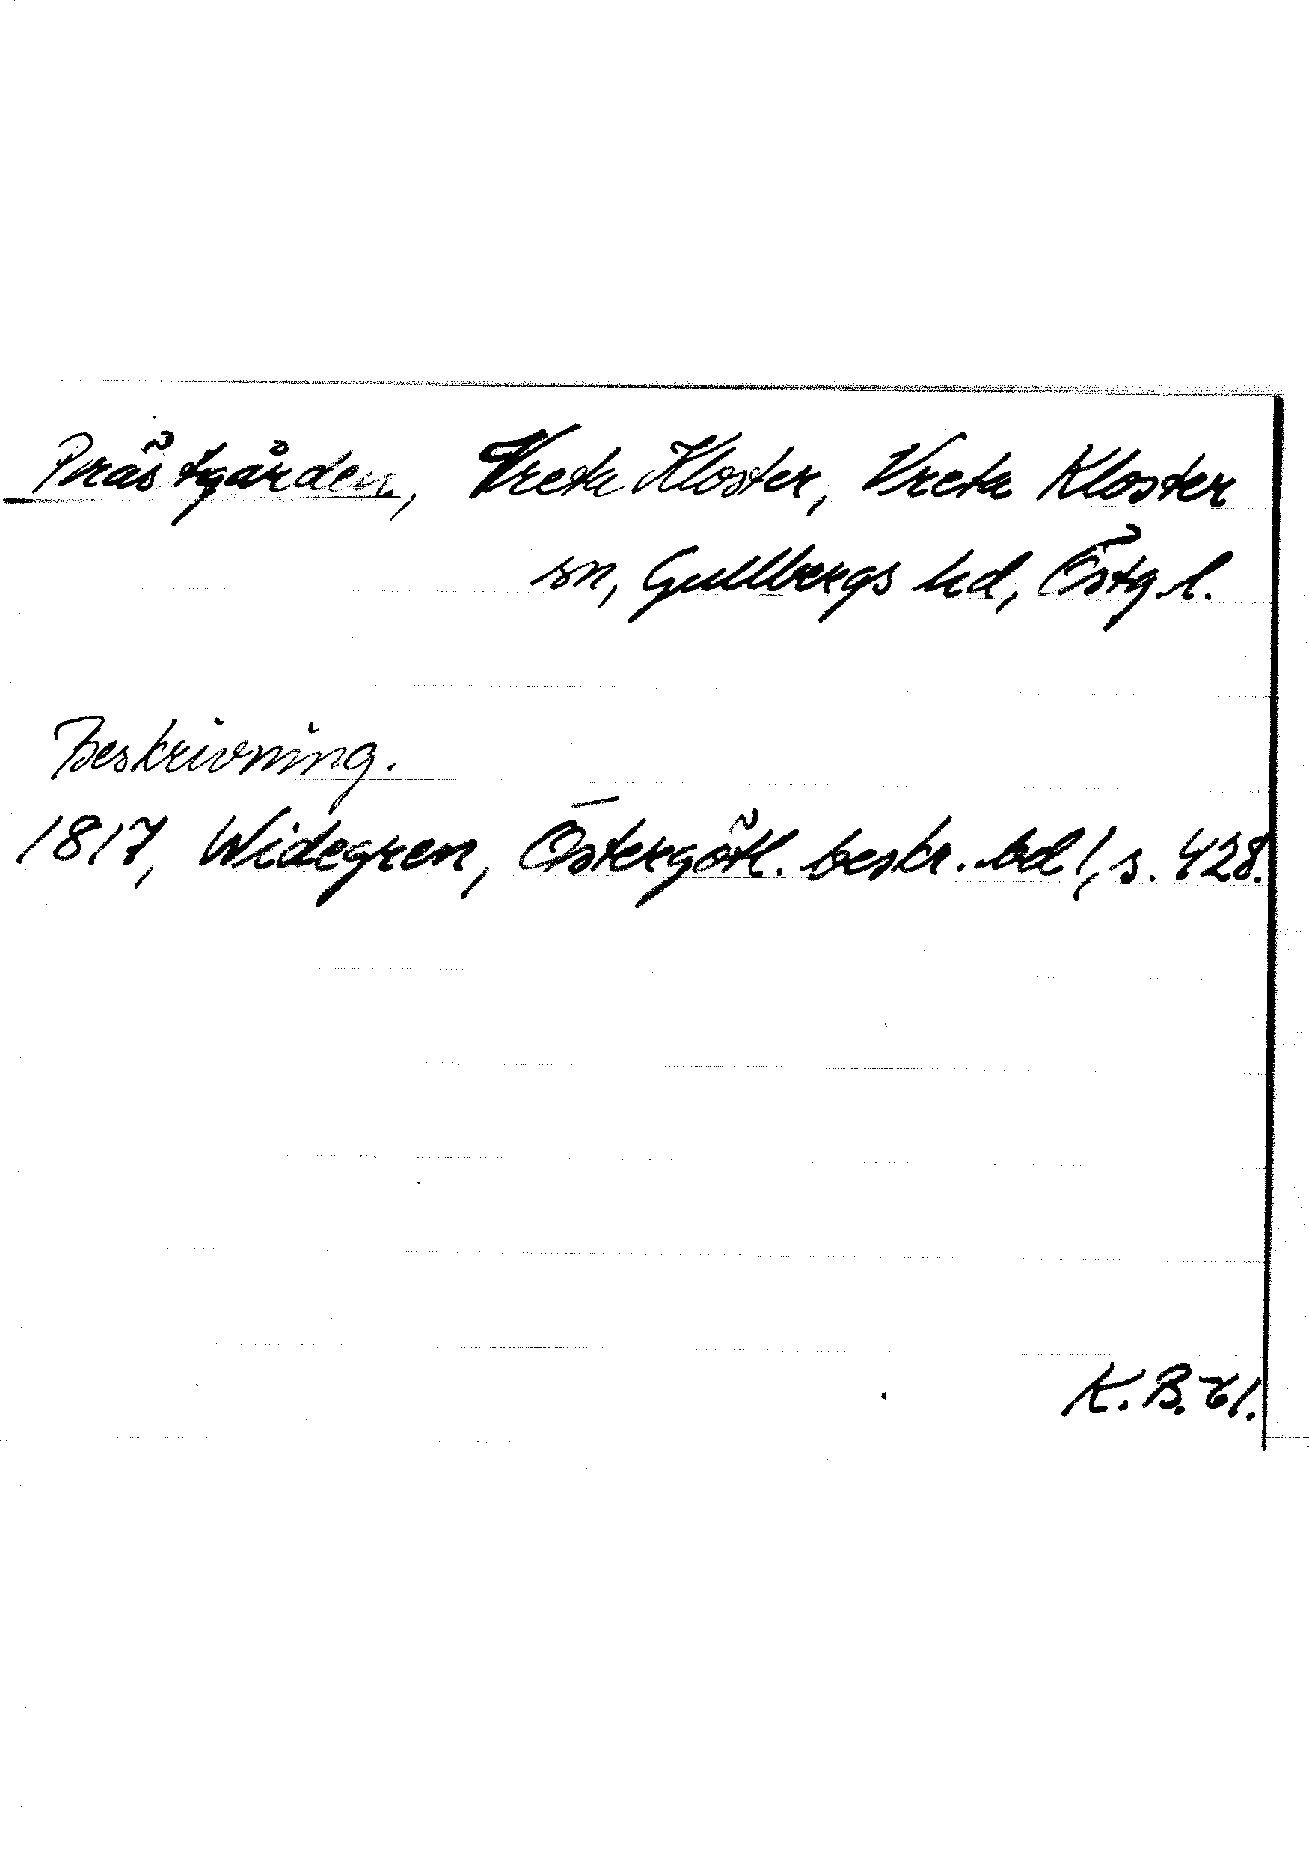 Prästgården, Vreta Kloster, Vreta Kloster
sn, Gullbergs hd, Östg l.
Beskrivning.
1817, Widegren, Östergötl. beskr. bd 1, s. 428.
K. B. 61.